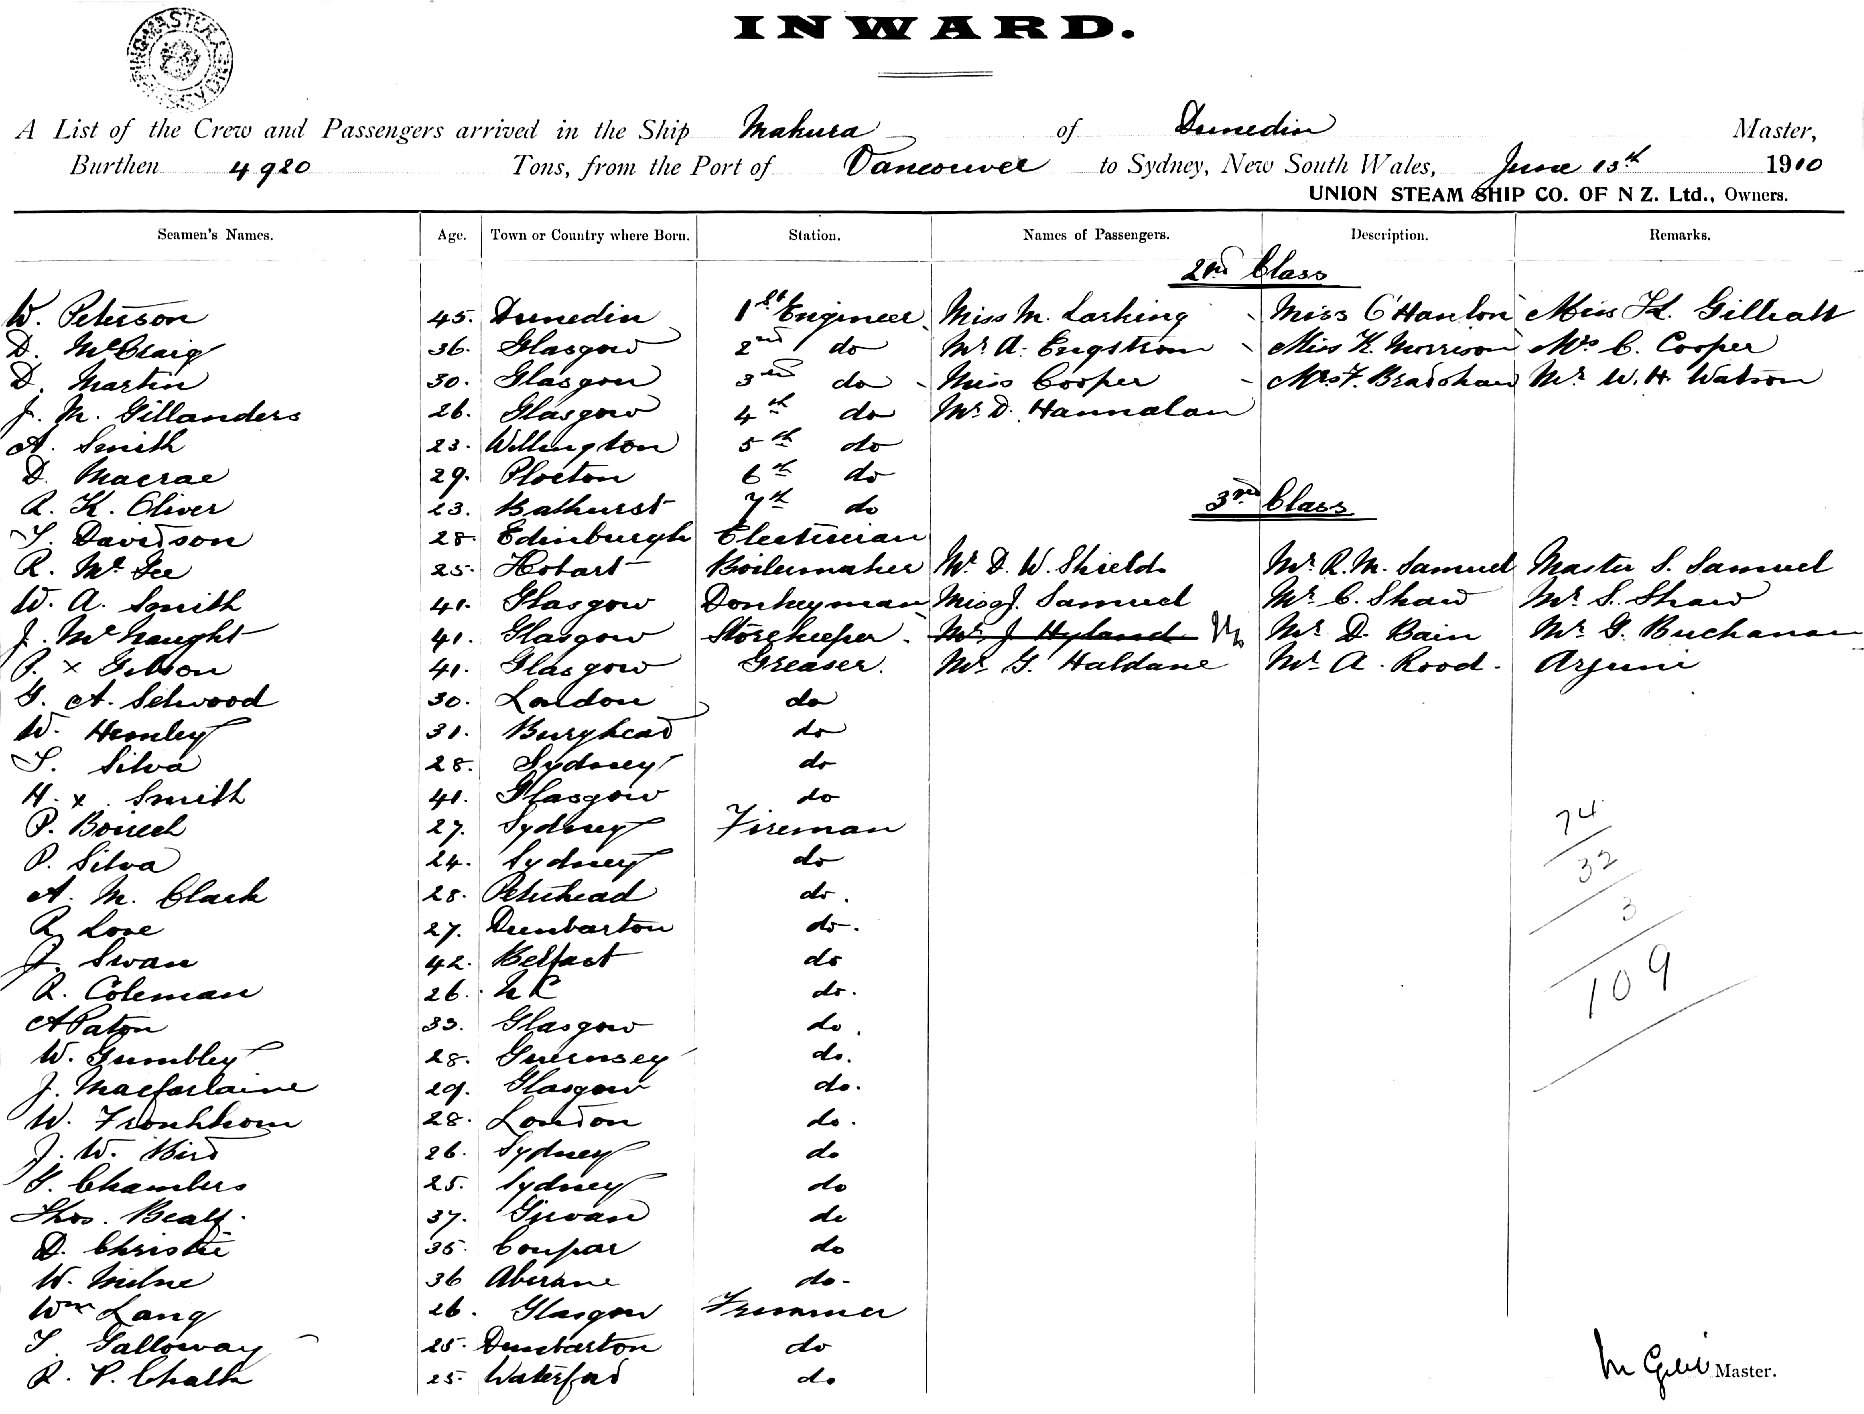 INWARD.
A List of the Crew and Passengers arrived in the Ship Makura of Dunedin Master,
Burthen 4920 Tons, from the Port of Vancouver to Sydney, New South Wales, June 13th 1910
UNION STEAM SHIP CO. OF N Z. Ltd., Owners.
Seamen's Names. Age. Town or Country where Born. Station. Names of Passengers. Description. Remarks.
2nd Class
W. Peterson 45. Dunedin 1st Engineer Miss M. Larking Miss O'Hanlon Miss Gilhatt
D. McCraig 36. Glasgow 2nd do Mr A. Engstrom Miss K. Morrison Mrs C. Cooper
D. Martin 30. Glasgow 3rd do Miss Cooper Mrs F. Bradshaw Mr W. H. Watson
J. M. Gillanders 26. Glasgow 4th do Mr D. Hannalan
A. Smith 23. Wellington 5th do
D. Macrae 29. Plocton 6th do
R. K. Oliver 23. Bathurst 7th do
3rd Class
T. Davidson 28. Edinburgh Electrician
R. McGee 25. Hobart Boilermaker Mr D. W. Shields Mr R. M. Samuel Master S. Samuel
W. A. Smith 41. Glasgow Donkeyman Miss J. Samuel Mr C. Shaw Mr S. Shaw
J. McNaught 41. Glasgow Storekeeper Mr J Hyland Mr D. Bain Mr G. Buchanan
P. x Gibson 41. Glasgow Greaser. Mr G. Haldane Mr A. Rood. Arjuni
G. A. Selwood 30. London do
W. Hemley 31. Burghead do
T. Silva 28. Sydney do
H. x Smith 41. Glasgow do
P. 27. Sydney Fireman
74
P. Silva 24. Sydney do
32
A. M. Clark 28. Peterhead do.
3
R. Love 27. Dumbarton do.
J. Swan 42. Belfast do
109
R. Coleman 26. do.
A Paton 33. Glasgow do.
W. Gumbley 28. Guernsey do.
J. Macfarlaine 29. Glasgow do.
W. 28. London do.
J. W. Bird 26. Sydney do
G. Chambers 25. Sydney do
Thos. Bealy. 37. Girvan do
D. Christie 35. Coupar do
W. Milne 36 do-
Wm Lang 26. Glasgow Trimmer
T. Galloway 25. Dumbarton do
R. P. Chalk 25. Waterford do
Master.